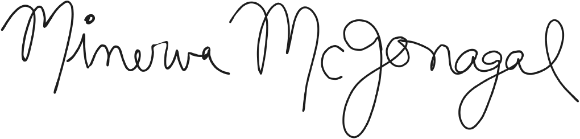 Minerva McGonagal